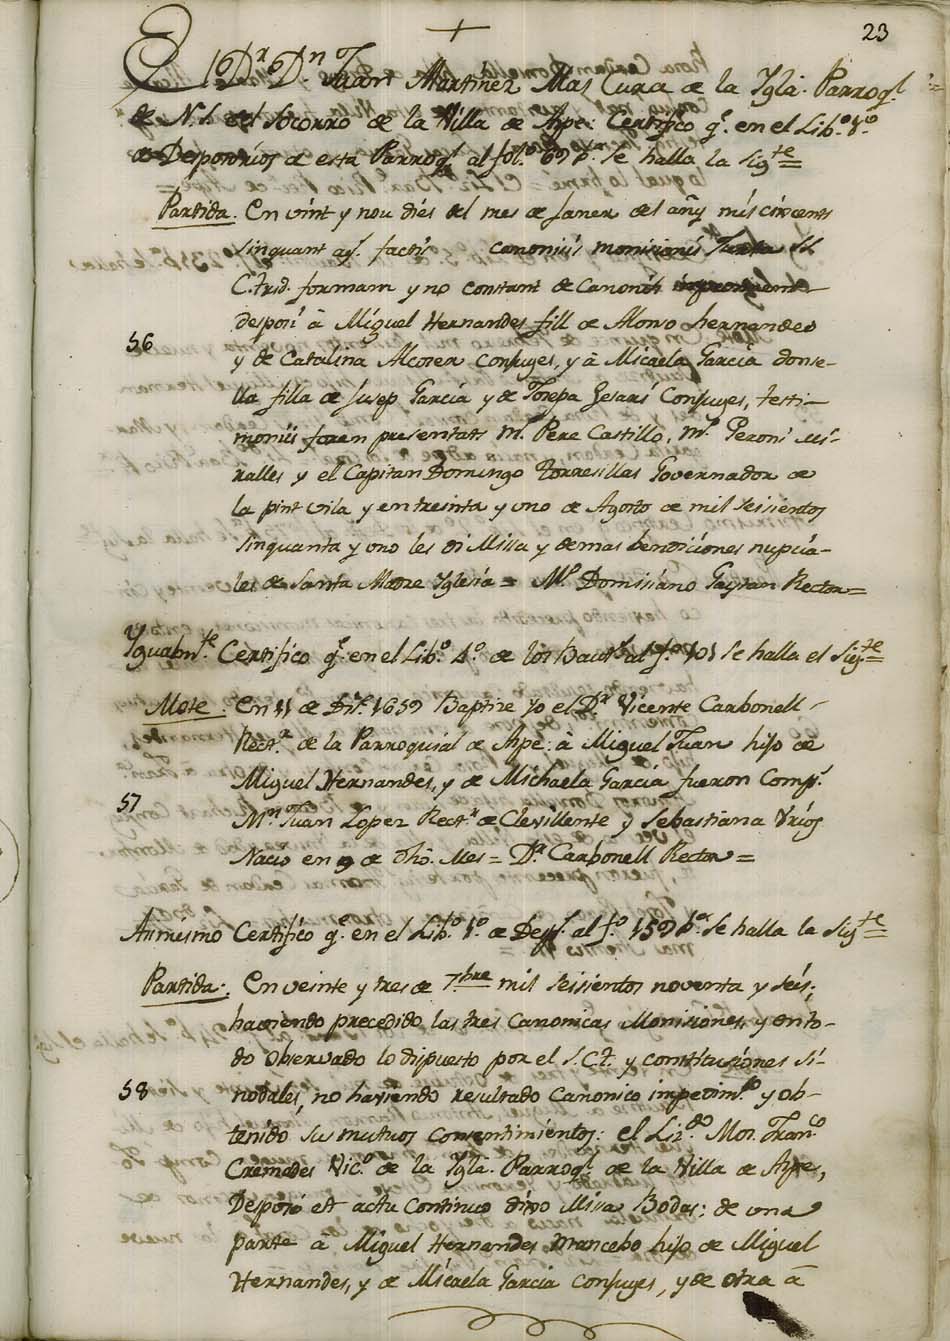 23
El Dr. Dn. Juan Martinez Mas Cura de la Ygla. Parroql.
de N. S. del Socorro de la Villa de Aspe: Certifico qe. en el Libo. 1o.
de Desposorios de esta Parroql. al fol. 69 Pa. se halla la Sigte =
Partida. En vint y nou dies del mes de Janer del añy mil sinch cents
sinquant y factis canoniis monicionis Juxta S.
C. Trid. formam y no constant de Canonich
desposi à Miguel Hernandes fill de Alonso hernandes
56
y de Catalina Alcoser conjuges, y à Micaela Garcia donse-
lla filla de Jusep Garcia y de Josepa Gesari Conjuges, testi-
moniis foren presentats Mo. Pere Castillo, Mo. Geroni Mi-
ralles y el Capitan Domingo Torresillas Governador de
la pint vila y en treinta y uno de Agosto de mil seisientos
sinquanta y uno les di Missa y demas bendiciones nupcia-
les de Santa Madre Yglesia = Mo. Domisiano Gaytan Rector =
Ygualmte. Certifico qe. en el Libo. 4o. de los Bauts. al fo. 101 se halla el Sigte =
Mote. En 11 de 1659 Baptize yo el Dr. Vicente Carbonell
Rectr. de la Parroquial de Aspe: à Miguel Juan hijo de
Miguel Hernandes, y de Michaela Garcia fueron Comps.
57
Mn. Juan Lopez Rectr. de Clevillente y Sebastiana Urios
Nacio en 9 de dho. Mes = Dr. Carbonell Rector =
Asimismo Certifico qe. en el Libo. 1o. de Desps. al fo. 159 Pa. se halla la Sigte =
Partida. En veinte y tres de 7bre mil seisientos noventa y seis;
haviendo precedido las tres Canonicas Monisiones, y en to-
do observado lo dispuesto por el S. C. T. y constitusiones Si-
58
nodales, no haviendo resultado Canonico impedimto. y ob-
tenido su mutuos consentimientos: el Lizdo. Mos. Franco.
Cremades Vico. de la Ygla. Parroql. de la Villa de Aspe,
Desposó et actu continuo dixo Missa Bodas: de una
parte à Miguel Hernandes mancebo hijo de Miguel
Hernandes, y de Micaela Garcia conjuges, y de otra à